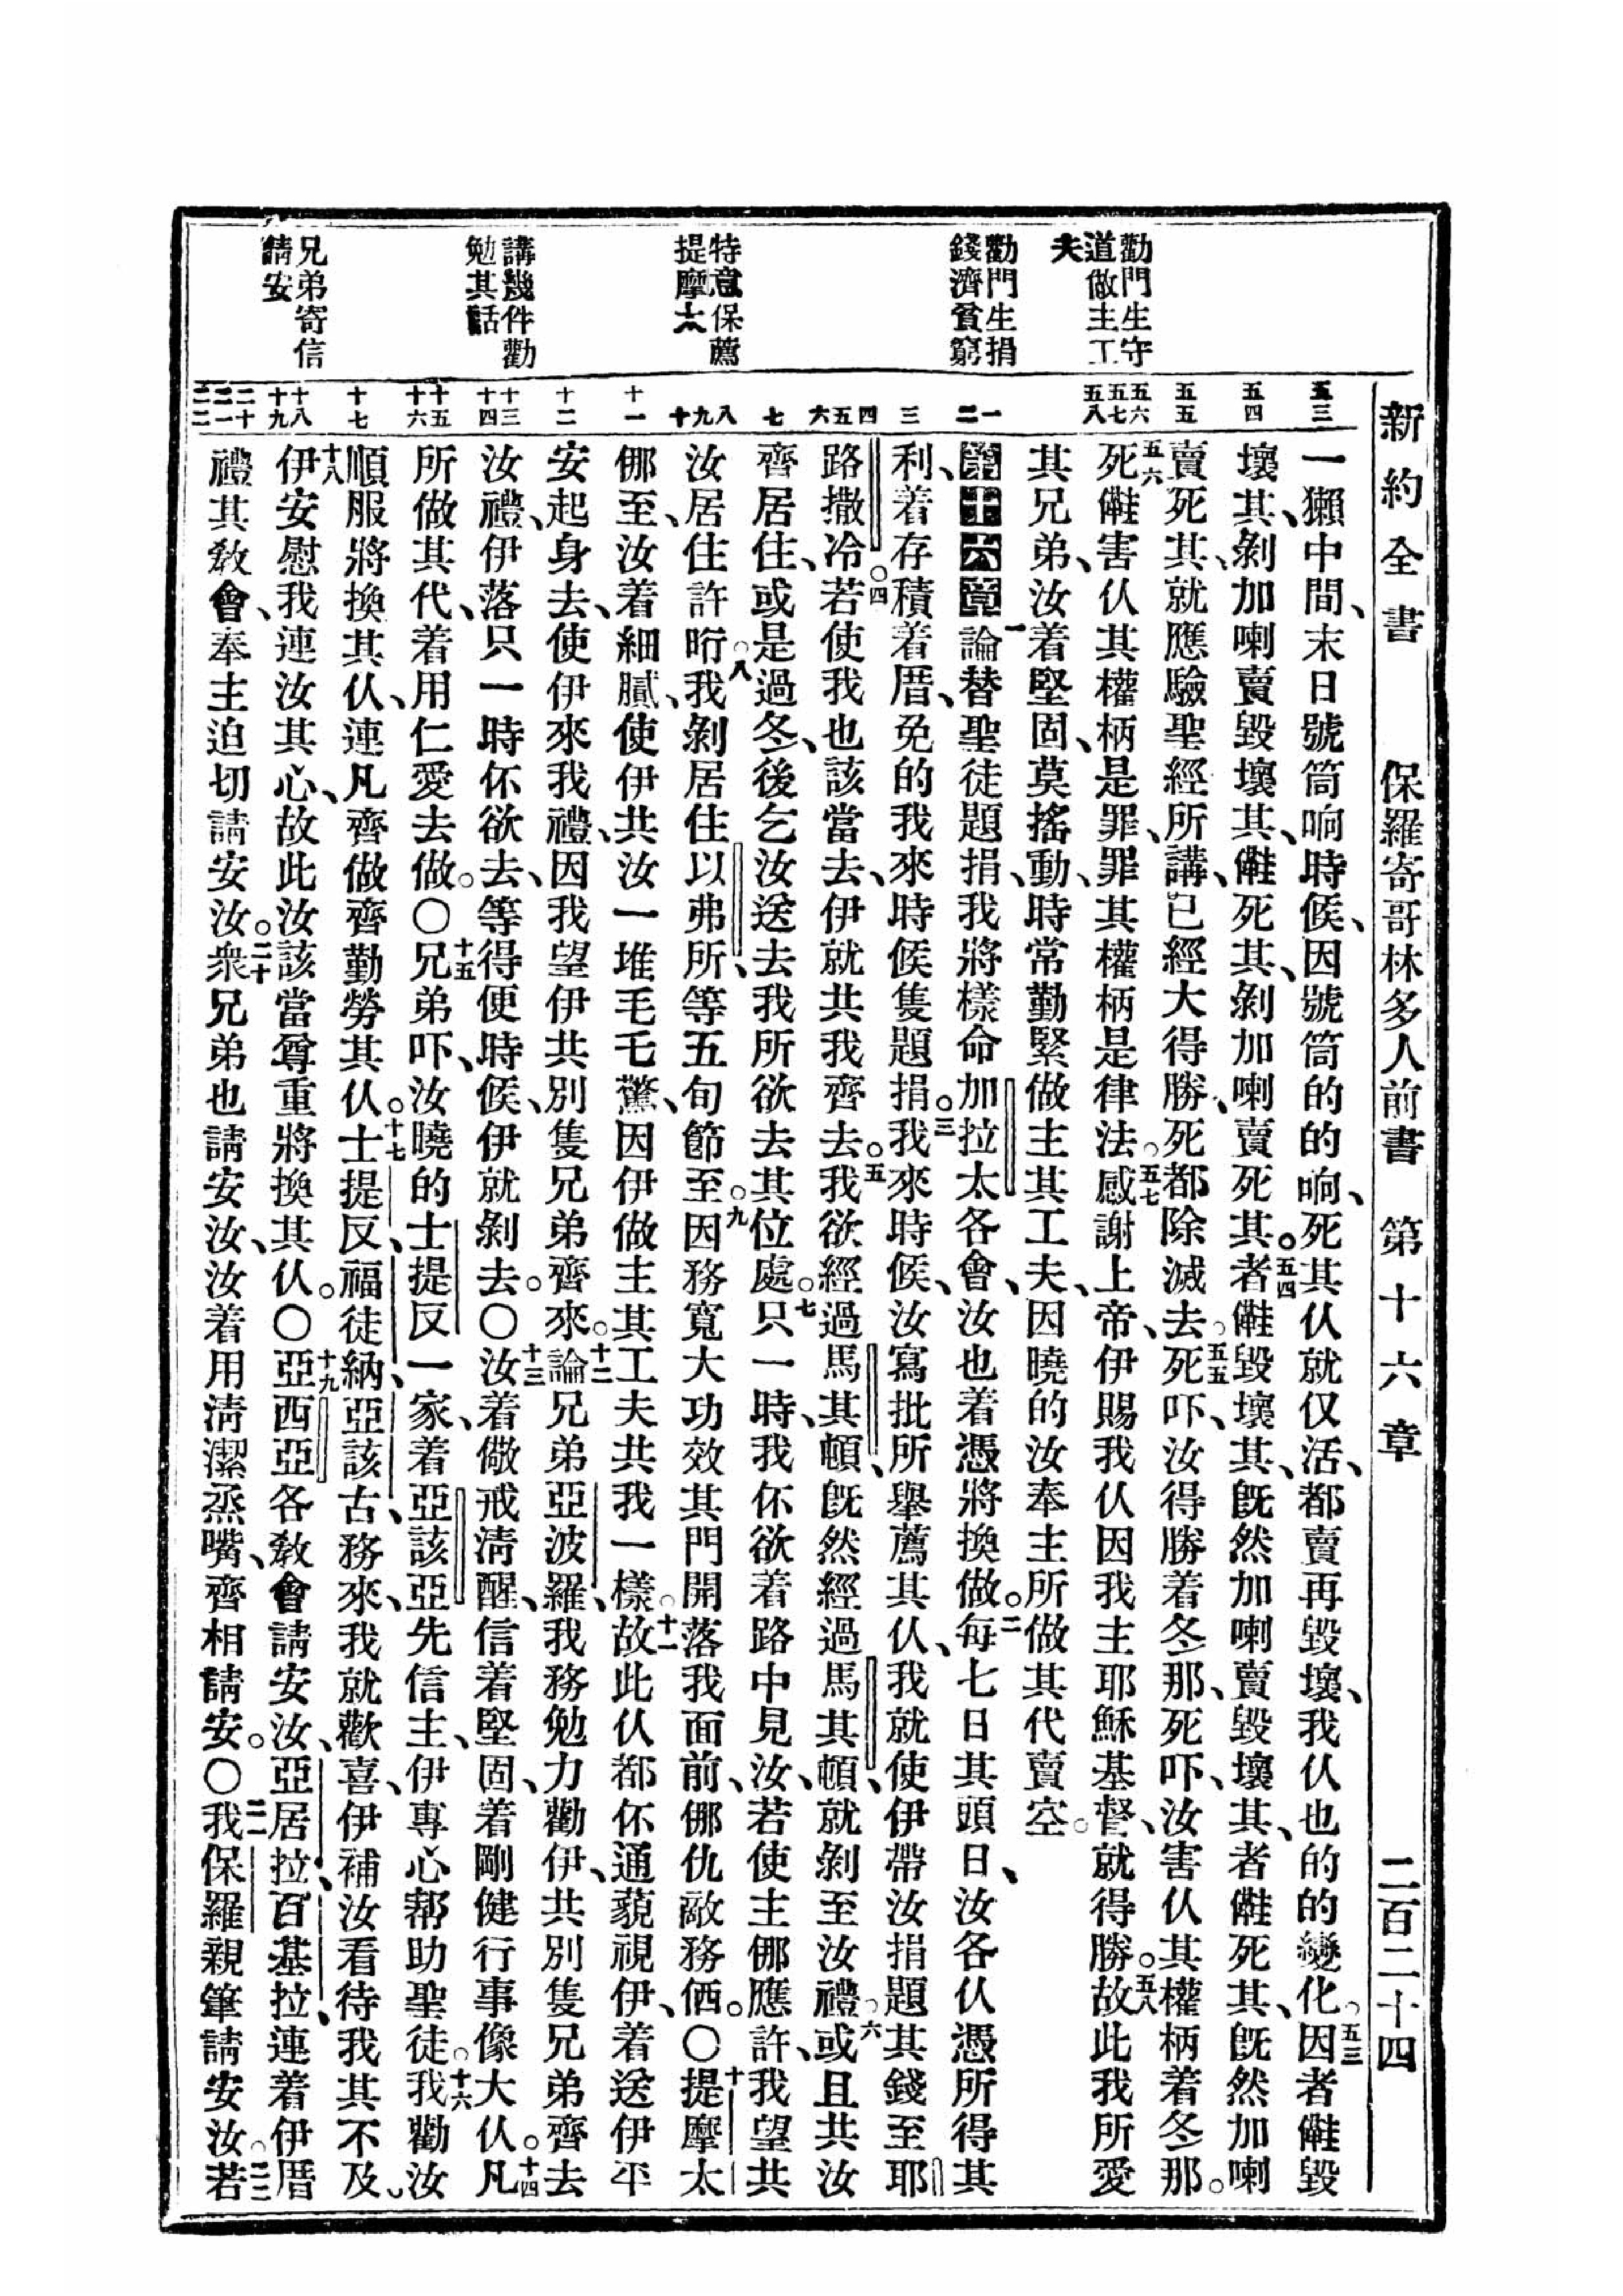 新約全書　保羅寄哥林多人前書　第十六章　二百二十四
勸門生守
道做主工
夫
勸門生捐
錢濟貧窮
特意保薦
提摩太
講幾件勸
勉其話
兄弟寄信
請安
五三
五四
五五
五六
五七
五八
一
二
三
四
五
六
七
八
九
十
十一
十二
十三
十四
十五
十六
十七
十八
十九
二十
二一
二二
一獺中間、末日號筒响時候、因號筒的的响、死其仈就仅活、都賣再毀壞、我仈也的的變化。五三因者㒕毀
壞其、剝加喇賣毀壞其、㒕死其、剝加喇賣死其。五四者㒕毀壞其、旣然加喇賣毀壞其、者㒕死其、旣然加喇
賣死其、就應驗聖經所講、已經大得勝、死都除滅去。五五死吓、汝得勝着冬那、死吓、汝害仈其權柄着冬那。
五六死㒕害仈其權柄是罪、罪其權柄是律法。五七感謝上帝、伊賜我仈因我主耶穌基督、就得勝。五八故此我所愛
其兄弟、汝着堅固、莫搖動、時常勤緊做主其工夫、因曉的汝奉主所做其代賣空。
第十六章一論替聖徒題捐、我將樣命加拉太各會、汝也着憑將換做。二每七日其頭日、汝各仈憑所得其
利、着存積着厝、免的我來時候隻題捐。三我來時候、汝寫批所舉薦其仈、我就使伊帶汝捐題其錢至耶
路撒冷。四若使我也該當去、伊就共我齊去。五我欲經過馬其頓、旣然經過馬其頓、就剝至汝禮。六或且共汝
齊居住、或是過冬、後乞汝送去我所欲去其位處。七只一時、我伓欲着路中見汝、若使主㑚應許、我望共
汝居住許昕。八我剝居住以弗所、等五旬節至。九因務寬大功效其門開落我面前、㑚仇敵務価。〇十提摩太
㑚至、汝着細膩、使伊共汝一堆毛乇驚、因伊做主其工夫共我一樣。十一故此仈都伓通藐視伊、着送伊平
安起身去、使伊來我禮、因我望伊共別隻兄弟齊來。十二論兄弟亞波羅、我務勉力勸伊、共別隻兄弟齊去
汝禮、伊落只一時伓欲去、等得便時候、伊就剝去。〇十三汝着儆戒淸醒、信着堅固、着剛健行事像大仈。十四凡
所做其代、着用仁愛去做。〇十五兄弟吓、汝曉的士提反一家、着亞該亞先信主、伊專心幫助聖徒。十六我勸汝
順服將換其仈、連凡齊做齊勤勞其仈。十七士提反、福徒納、亞該古務來、我就歡喜、伊補汝看待我其不及。
十八伊安慰我連汝其心、故此汝該當尊重將換其仈。〇十九亞西亞各敎會請安汝、亞居拉、百基拉、連着伊厝
禮其敎會、奉主迫切請安汝。二十衆兄弟也請安汝、汝着用淸潔烝嘴、齊相請安。〇二一我保羅親筆請安汝。二二若